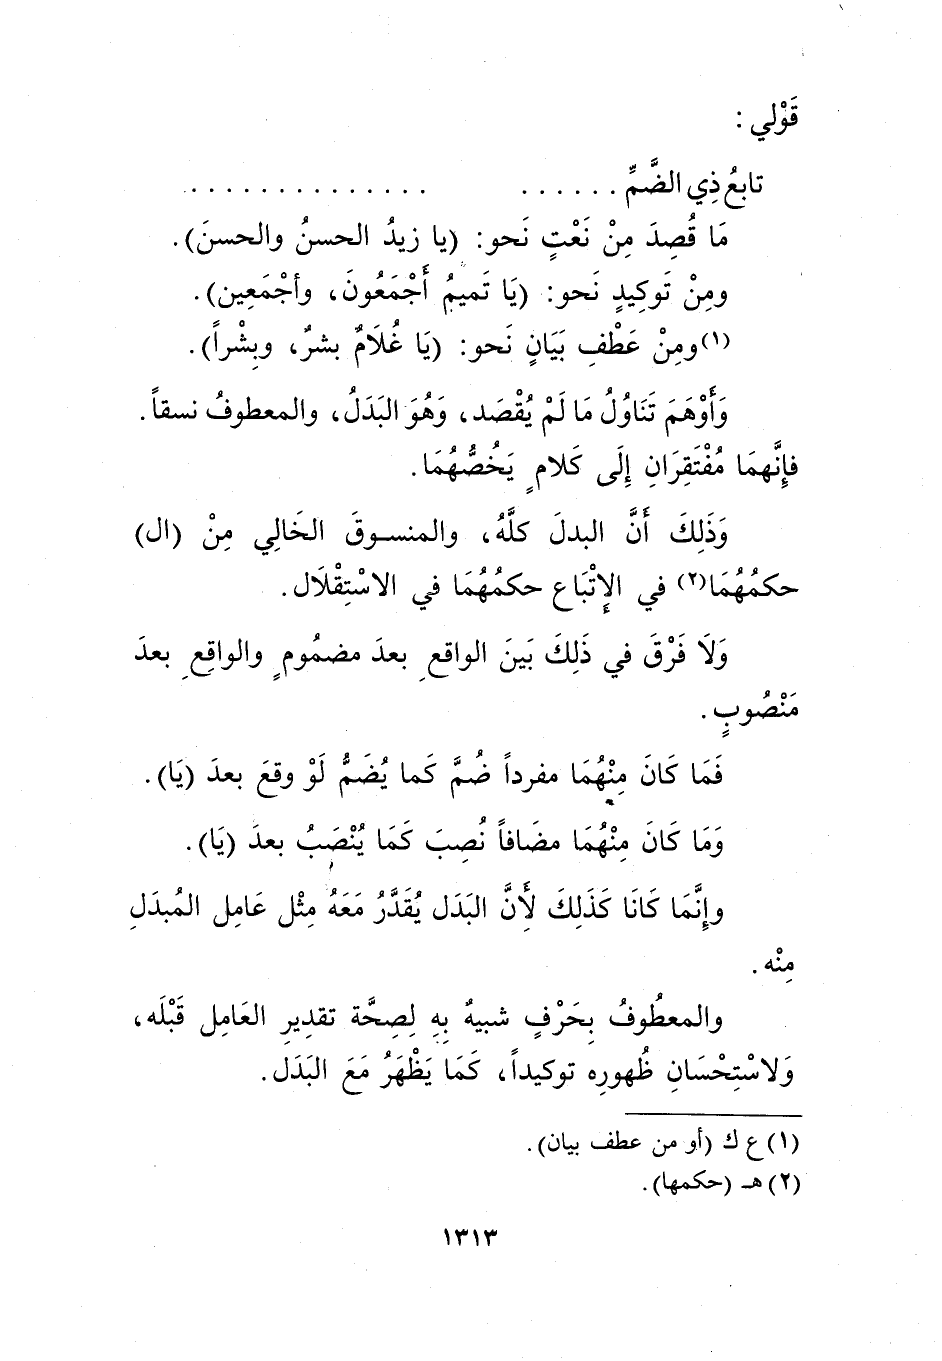 قَوْلي :
تابعُ ذِي الضَّمِّ . . . . . . . . . . . . . . . . . . . .
مَا قُصِدَ مِنْ نَعْتٍ نَحو: (يا زيدُ الحسنُ والحسنَ).
ومِنْ تَوكِيدٍ نَحو: (يَا تَميمُ أَجْمَعُونَ، وأجْمَعِين).
(١)ومِنْ عَطْفِ بَيَانٍ نَحو: (يَا غُلَامُ بشرٌ، وبِشْراً).
وَأَوْهَمَ تَنَاوُلُ مَا لَمْ يُقْصَد، وَهُوَ البَدَلُ، والمعطوفُ نسقاً.
فإِنَّهمَا مُفْتَقِرَانِ إِلَى كَلامٍ يَخُصُّهُمَا.
وَذَلِكَ أَنَّ البدلَ كلَّهُ، والمنسوقَ الخَالِي مِنْ (ال)
حكمُهُمَا(٢) في الإِتْبَاع حكمُهُمَا في الاسْتِقْلَال.
وَلَا فَرْقَ في ذَلِكَ بَينَ الواقعِ بعدَ مضمُومٍ والواقِعِ بعدَ
مَنْصُوبٍ.
فَمَا كَانَ مِنْهُمَا مفرداً ضُمَّ كَما يُضَمُّ لَوْ وقعَ بعدَ (يَا).
وَمَا كَانَ مِنْهُمَا مضَافاً نُصِبَ كَمَا يُنْصَبُ بعدَ (يَا).
وإِنَّمَا كَانَا كَذَلِكَ لِأَنَّ البَدَل يُقَدَّرُ مَعَهُ مِثْل عَامِل المُبدَلِ
مِنْه.
والمعطُوفُ بِحَرْفٍ شبيهٌ بِهِ لِصِحَّة تقدِيرِ العَامِل قَبْلَه،
وَلاسْتِحْسَانِ ظُهورِه توكيداً، كَمَا يَظْهَرُ مَعَ البَدَل.
(١) ع ك (أو من عطف بيان).
(٢) هـ (حكمها).
١٣١٣